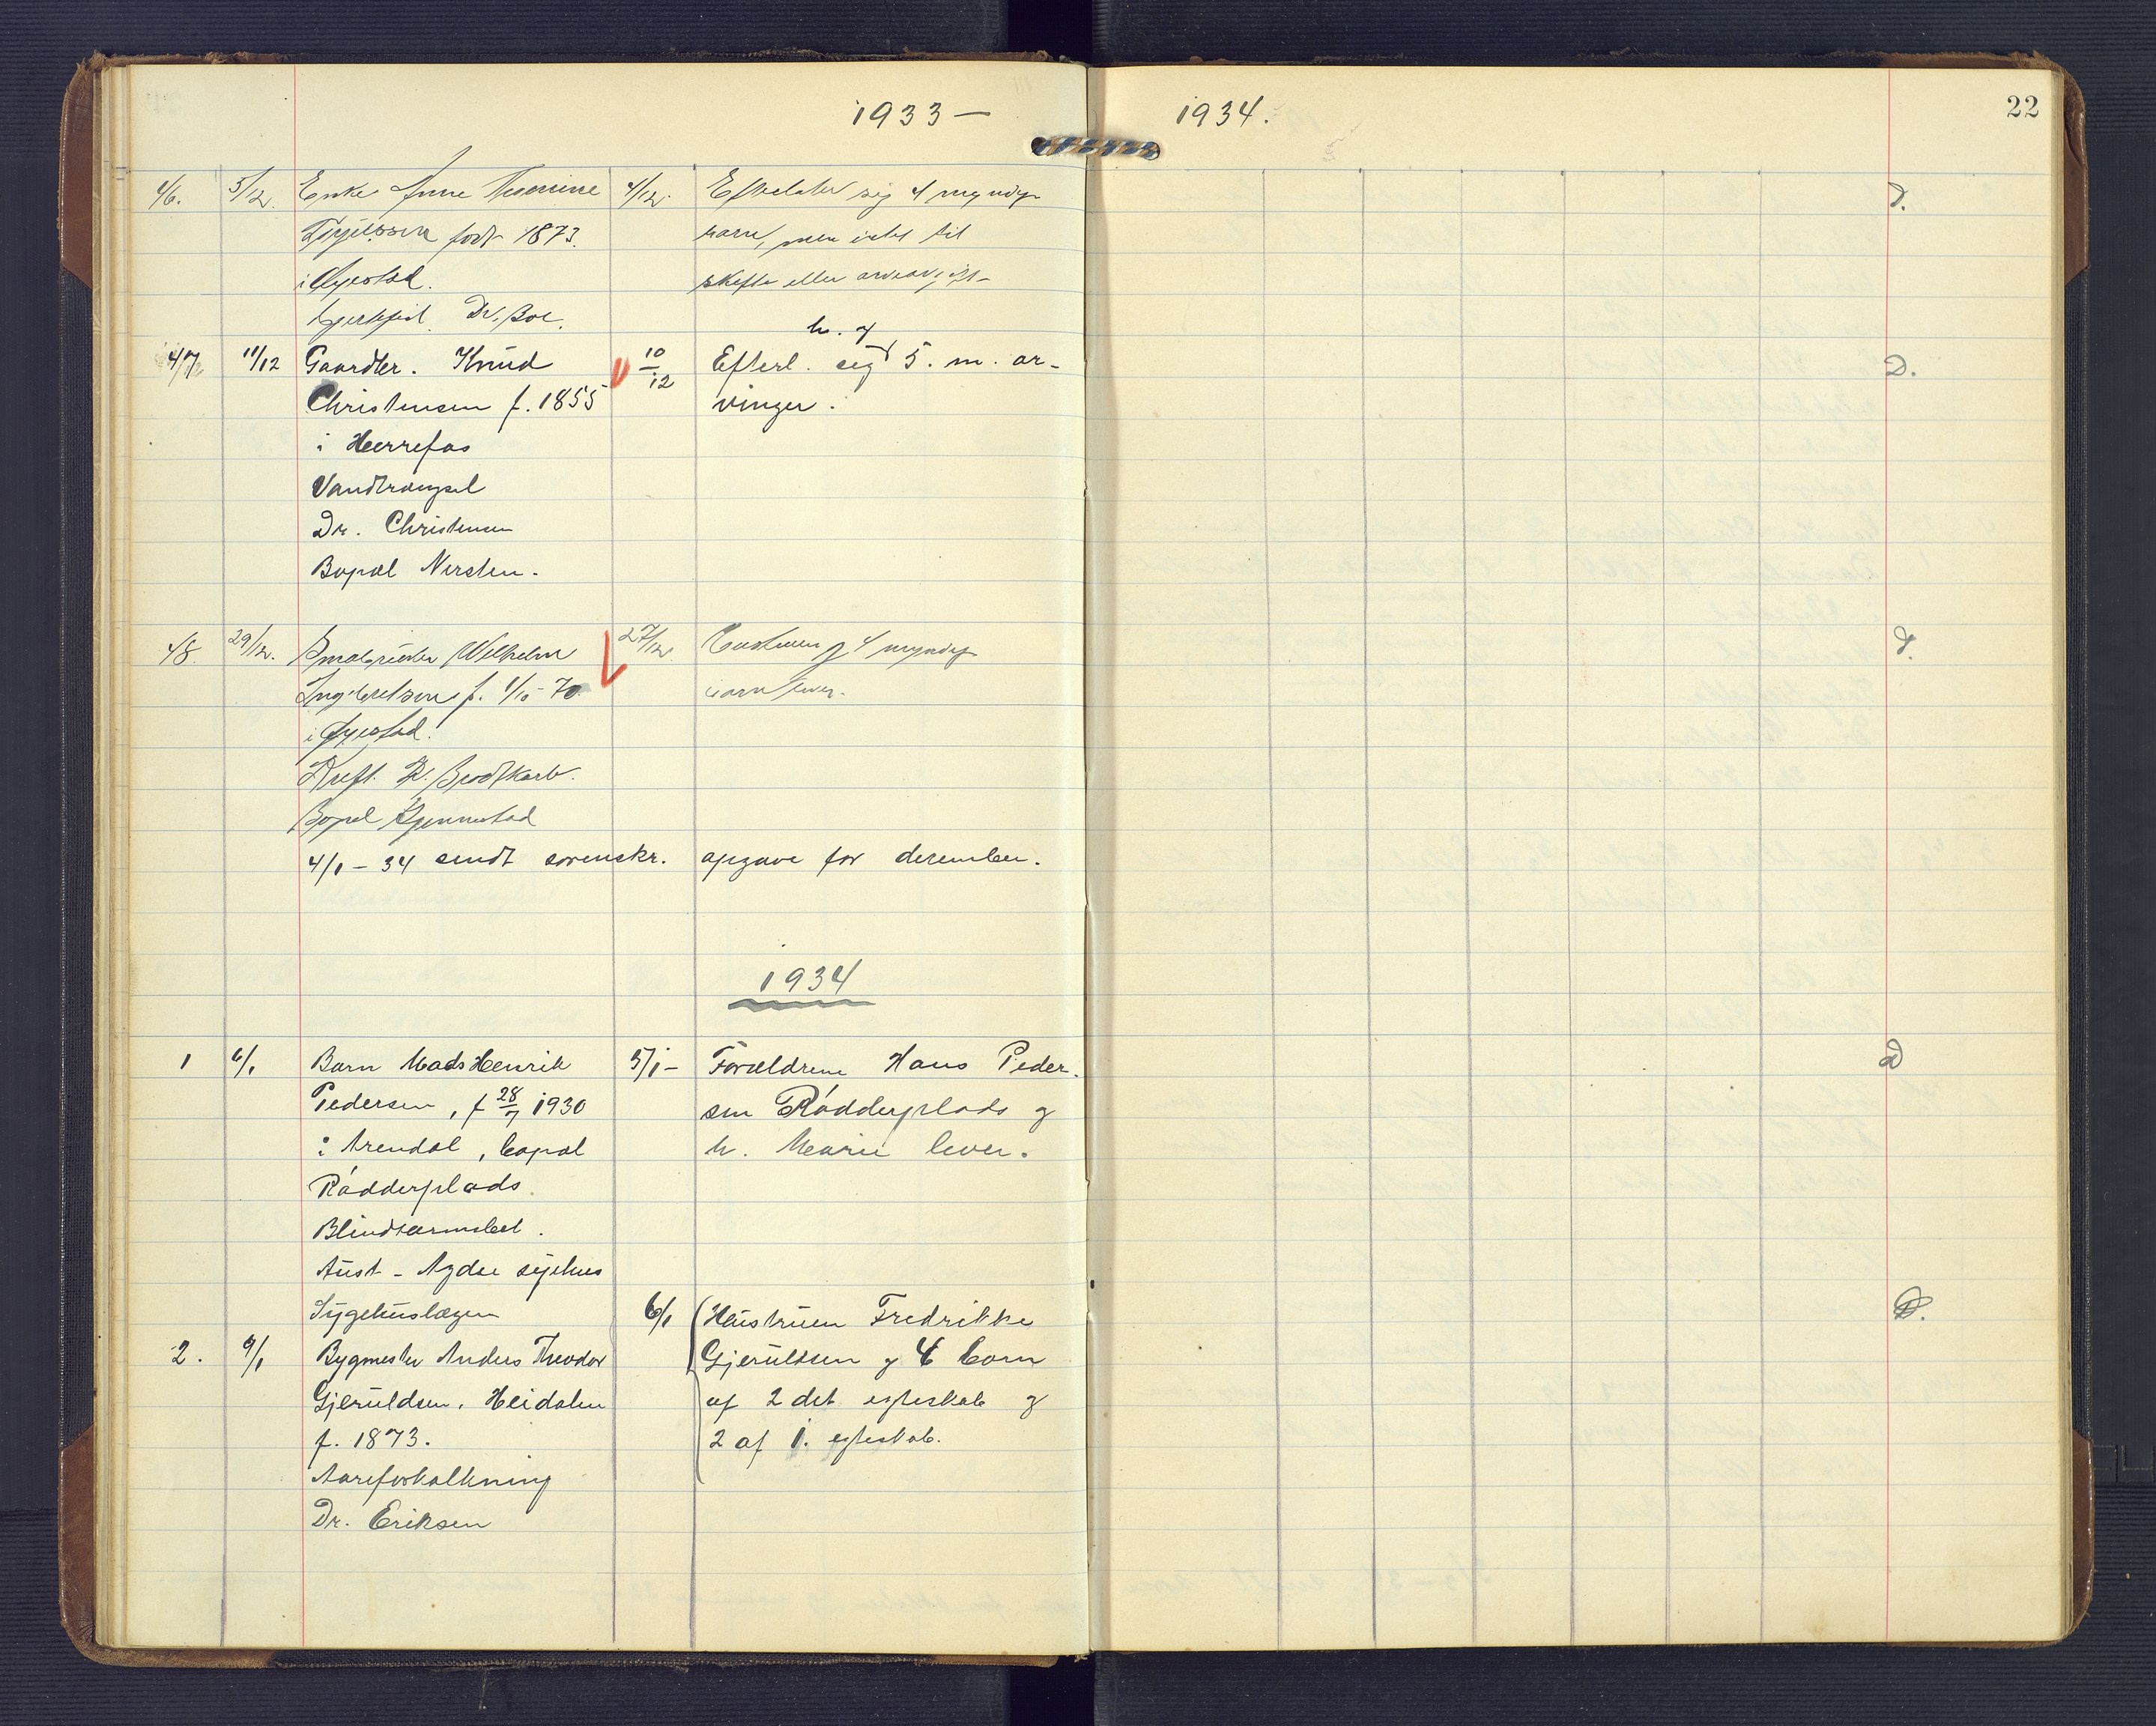 1933 – 1934.
22
46. 5/12. Enke Anne 4/12. Efterlater sig 4 myndige D.
født 1873. barn, men intet til
i Øyestad. skifte eller arveavgift –
Hjertefeil. Dr. Boe.
h. og
47 11/12 Gaardbr. Knud 10/12 Efterl. sig 5. m. ar- D.
Christensen f. 1855 vinger.
i Herrefos
Vandtrængsel
Dr. Christensen
Bopæl Nersten.
48. 29/12. Smabruker Wilhelm 27/12. Hustruen og 4 myndige D.
Ingebretsen f. 1/10-70. barn lever.
i Øyestad.
Kreft. Dr. Brodtkorb.
Bopæl
4/1 – 34 sendt sorenskr. opgave for desember.
1934
1 6/1 Barn Mads Henrik 5/1 – Forældrene Hans Peder- D
Pedersen, f 28/7 1930 sen Rødderplads og
i Arendal, bopæl h. Marie lever.
Rødderplads.
Blindtarmsbet.
Aust-Agder sykehus
Sygehuslægen 6/1 Hustruen Fredrikke D.
2. 9/1 Bygmester Anders Theodor Gjeruldsen og 4 barn
Gjeruldsen, Heidalen af 2det egteskab og
f. 1873. 2 af 1. egteskab.
Aareforkalkning
Dr. Eriksen